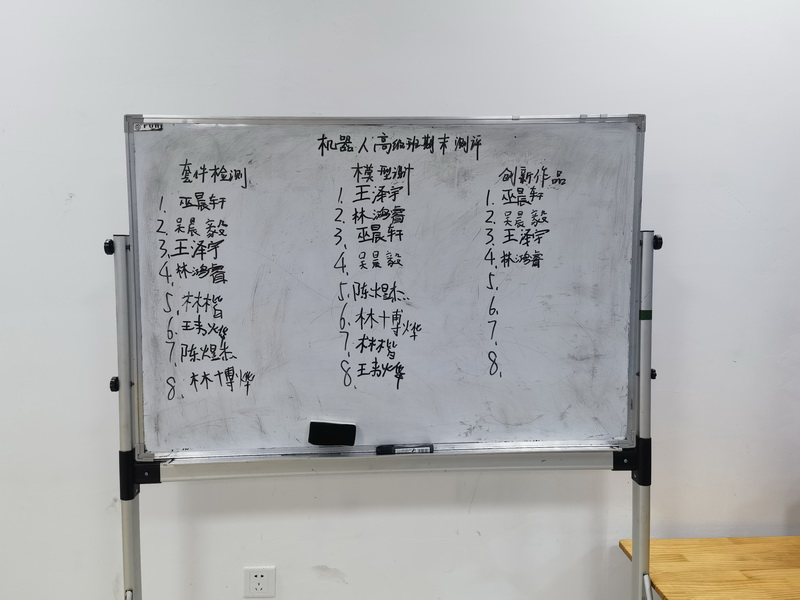 机器人高级班期末测评
套件检测
1. 巫晨轩
2. 吴晨毅
3. 王泽宇
4. 林鸿睿
5. 林楷
6. 王韦烨
7. 陈煜杰
8. 林博烨
模型设计
1. 王泽宇
2. 林鸿睿
3. 巫晨轩
4. 吴晨毅
5. 陈煜杰
6. 林博烨
7. 林楷
8. 王韦烨
创新作品
1. 巫晨轩
2. 吴晨毅
3. 王泽宇
4. 林鸿睿
5.
6.
7.
8.